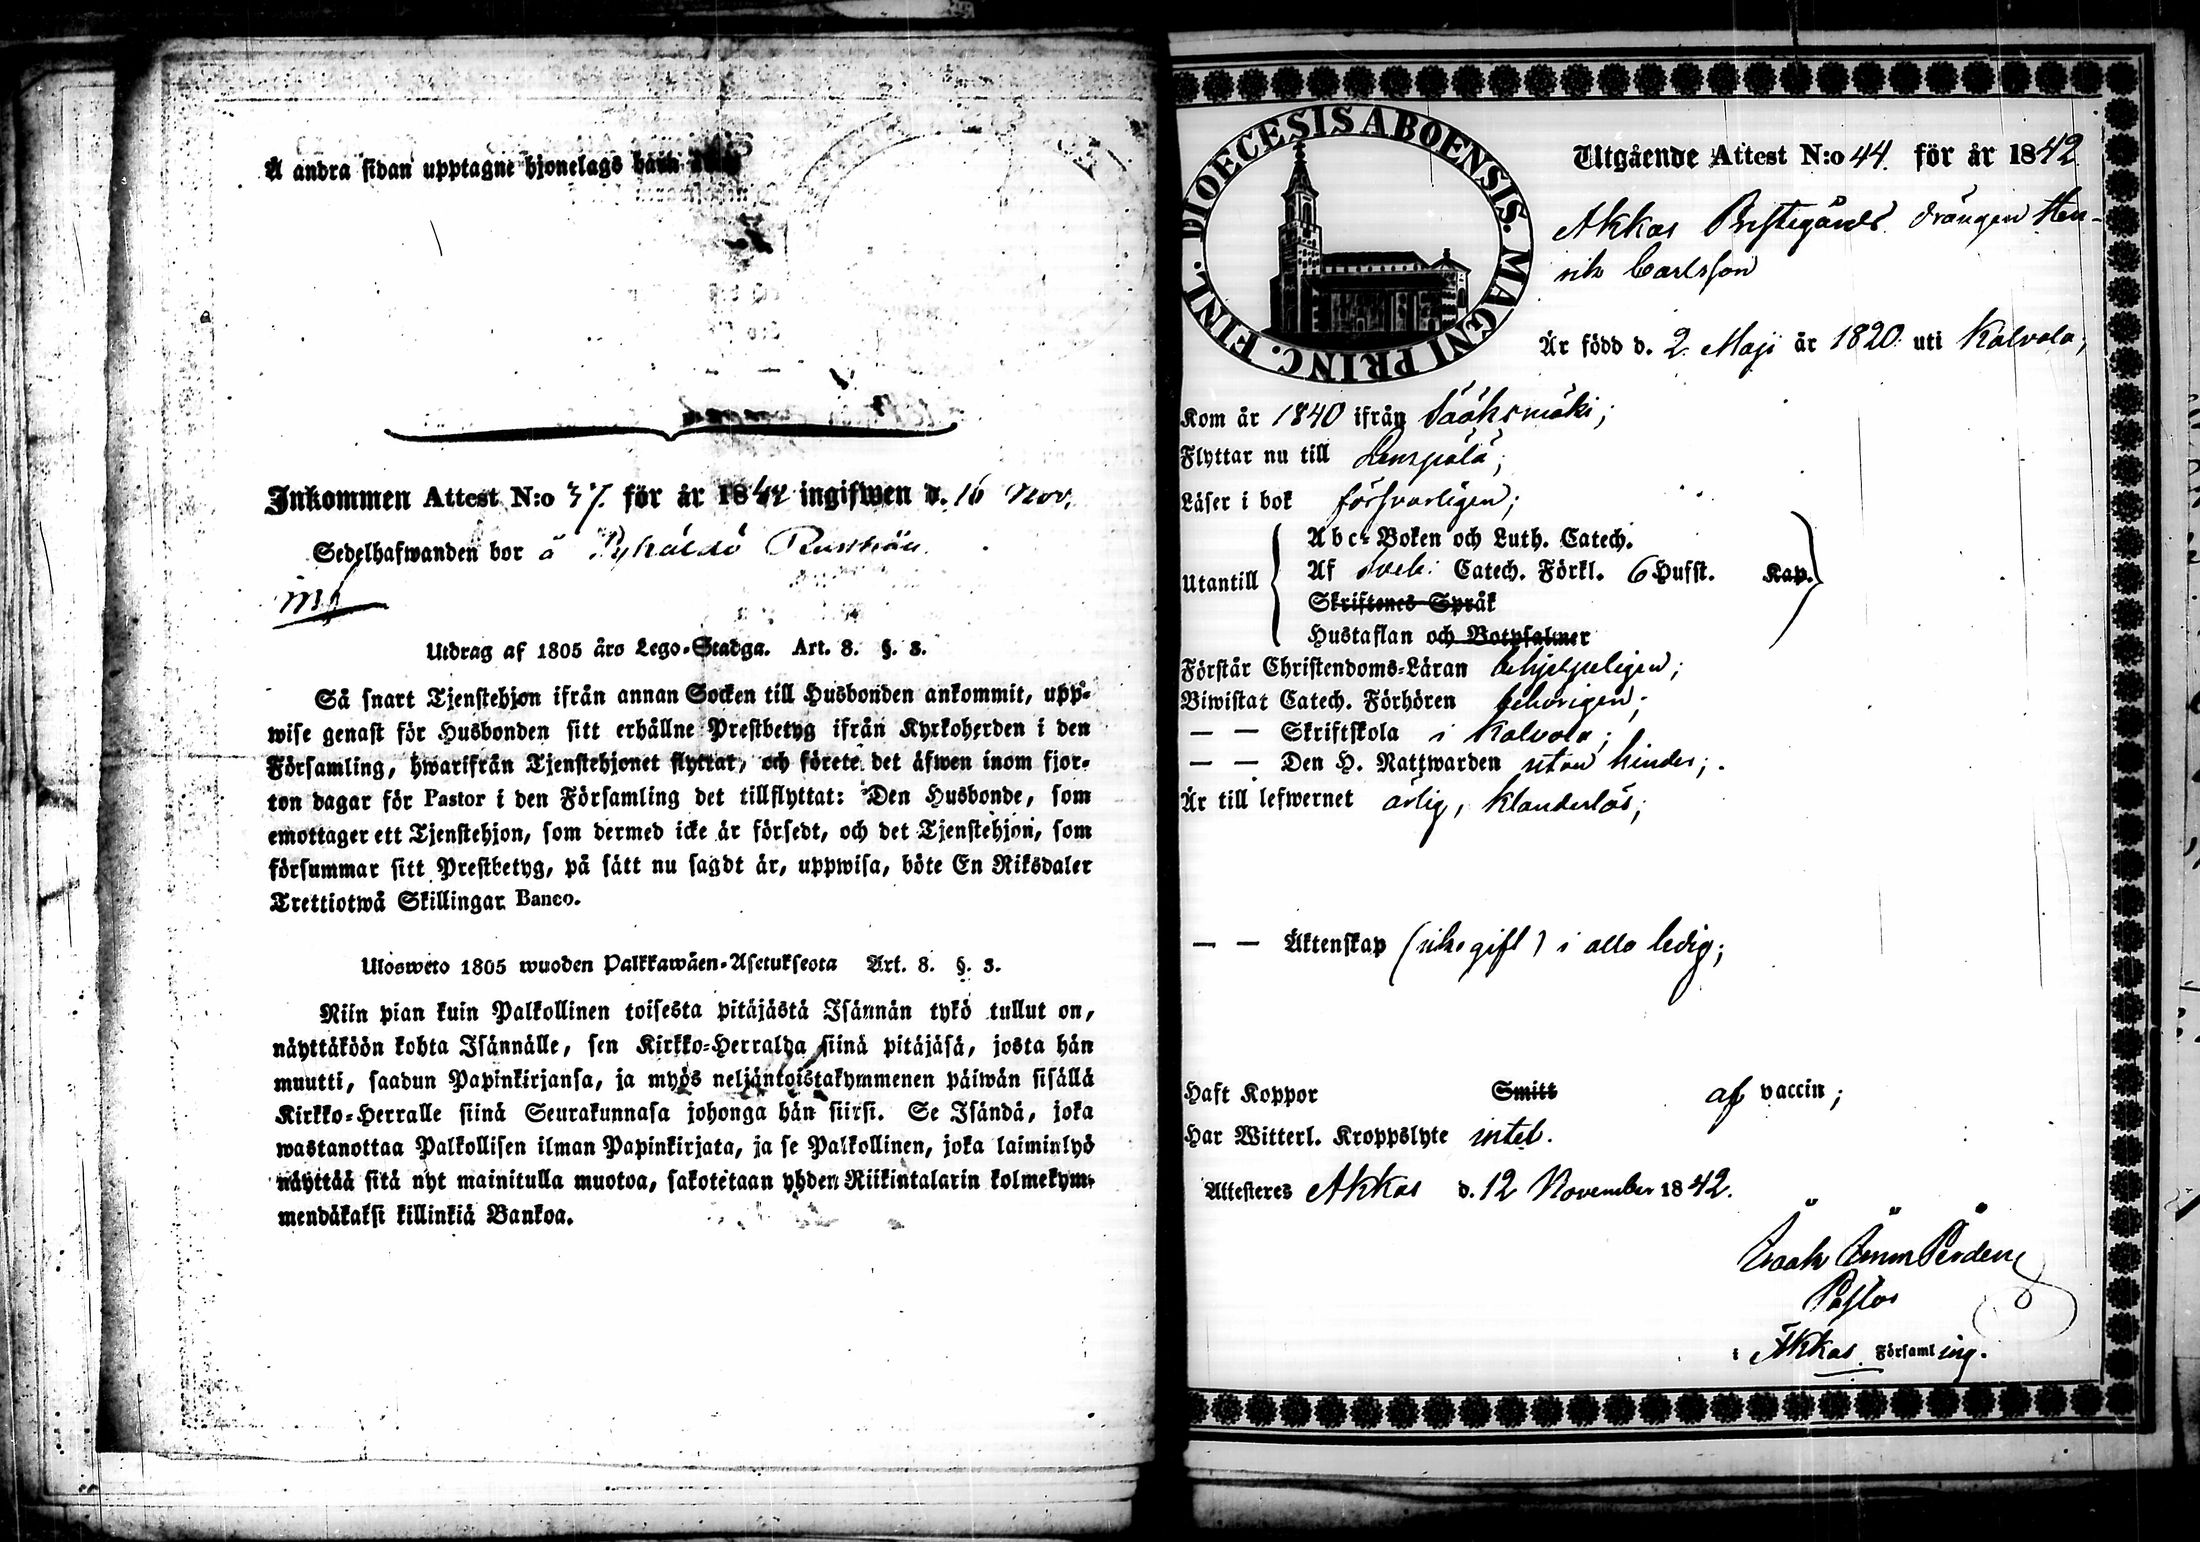 Å andra sidan upptagne hjonelags barn
Inkommen Attest N:o 37. för år 1842 ingifwen d. 16 Nov.
Sedelhafwanden bor å Rusthåll
Utdrag af 1805 års Lego-Stadga. Art. 8. §. 3.
Så snart Tjenstehjon ifrån annan Socken till Husbonden ankommit, upp-
wise genast för Husbonden sitt erhållne Prestbetyg ifrån Kyrkoherden i den
Församling, hwarifrån Tjenstehjonet flyttat, och förete det äfwen inom fjor-
ton dagar för Pastor i den Församling det tillflyttat: Den Husbonde, som
emottager ett Tjenstehjon, som dermed icke är försedt, och det Tjenstehjon, som
försummar sitt Prestbetyg, på sätt nu sagdt är, uppwisa, böte En Riksdaler
Trettiotwå Skillingar Banco.
Ulosweto 1805 wuoden Palkkawäen-Asetuksesta Art. 8. §. 3.
Niin pian kuin Palkollinen toisesta pitäjästä Isännän tykö tullut on,
näyttäköön kohta Isännälle, sen Kirkko-Herralda siinä pitäjäsä, josta hän
muutti, saadun Papinkirjansa, ja myös neljäntoistakymmenen päiwän sisällä
Kirkko-Herralle siinä Seurakunnasa johonga hän siirsi. Se Isändä, joka
wastanottaa Palkollisen ilman Papinkirjata, ja se Palkollinen, joka laiminlyö
näyttää sitä nyt mainitulla muotoa, sakotetaan yhden Riikintalarin kolmekym-
mendäkaksi killinkiä Bankoa.
DIOECESIS ABOENSIS. MAGNI PRINC. FINL.
Utgående Attest N:o 44. för år 1842
Akkas Prestegårds drängen Hen-
rik Carlsson
Är född d. 2. Maji år 1820. uti Kalvola,
Kom år 1840 ifrån Sääksmäki;
Flyttar nu till Lempälä;
Läser i bok försvarligen;
Utantill
Abc-Boken och Luth. Catech.
Af Sveb. Catech. Förkl. 6 Hufst. Kap.
Skriftenes Språk
Hustaflan och Botpsalmer
Förstår Christendoms-Läran behjelpeligen;
Biwistat Catech. Förhören behörigen;
— — Skriftskola i Kalvola;
— — Den H. Nattwarden utan hinder;
Är till lefwernet ärlig, klanderlös;
— — Äktenskap (icke gift) i allo ledig;
Haft Koppor Smitt af vaccin;
Har Witterl. Kroppslyte intet.
Attesteres Akkas d. 12 November 1842.
Pastor
i Akkas Församling.